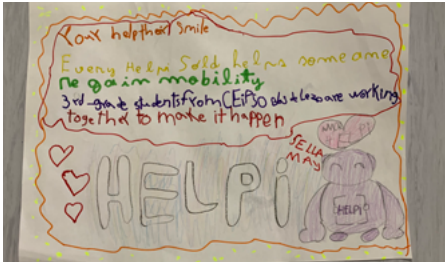 Your help their smile
Every Helpi Sold helps someone
regain mobility
3rd-grade students from CEiPSO are working
together to make it happen
SELLA
MAY
HELPi
HELPi